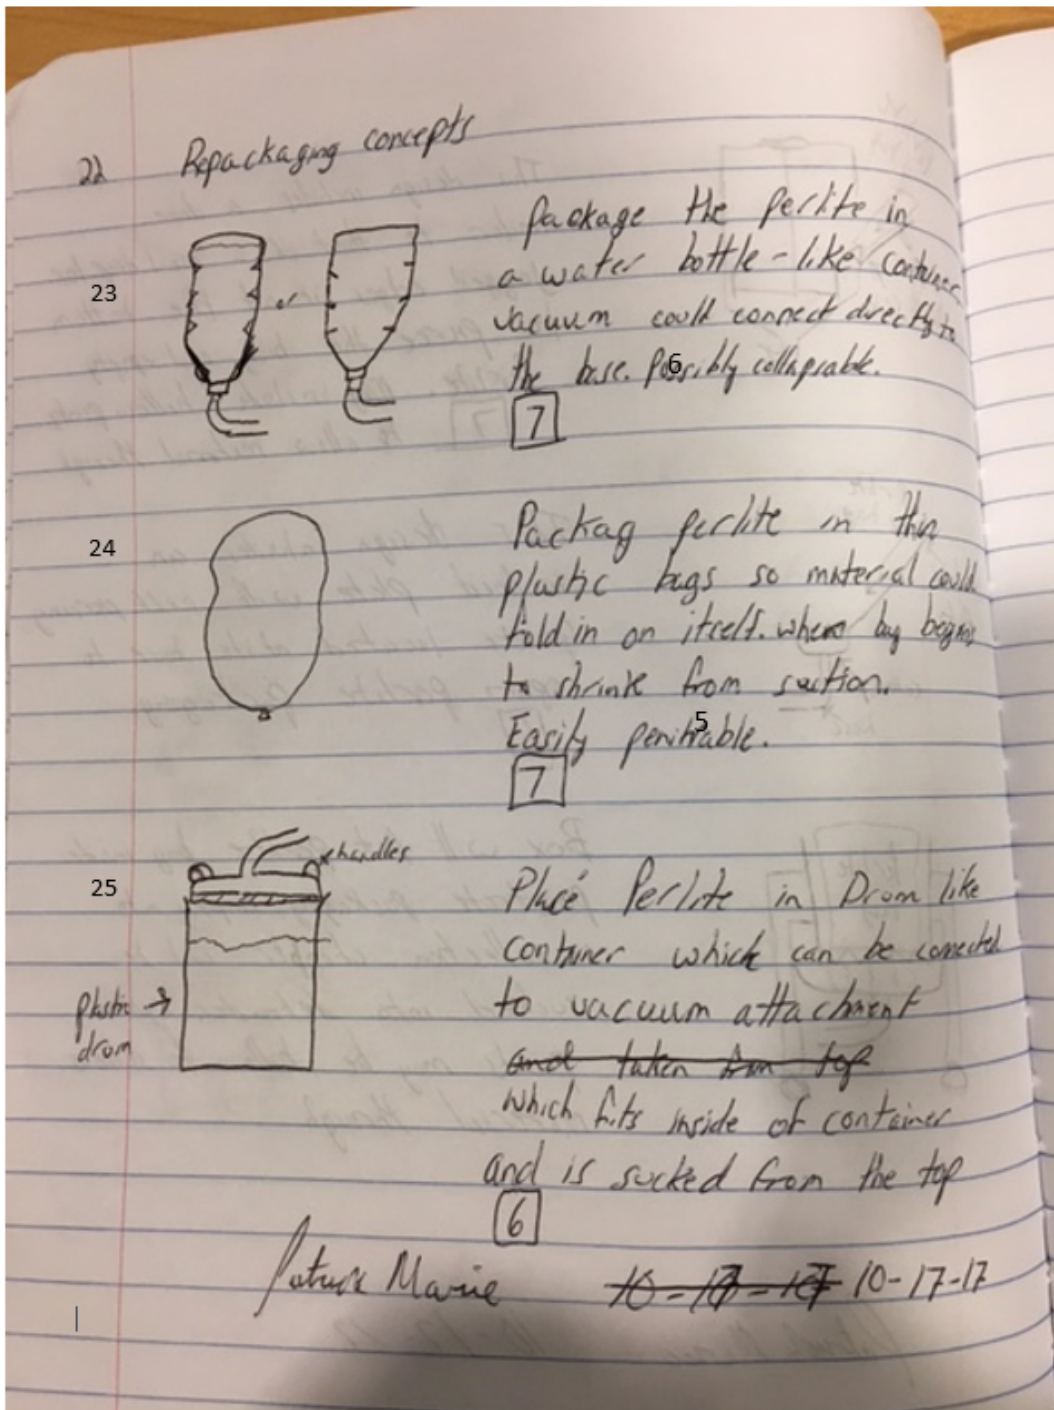 22 Repackaging concepts
23
or
Package the perlite in
a water bottle-like container
vacuum could connect directly to
the base. Possibly collapsable.
6
7
24
Packag perlite in thin
plastic bags so material could
fold in on itself. where bag begins
to shrink from suction.
Easily penitrable.
5
7
25
handles
plastic
drum
Place Perlite in Drum like
container which can be connected
to vacuum attachment
and taken from top
which fits inside of container
and is sucked from the top
6
Patrick 10-17-17